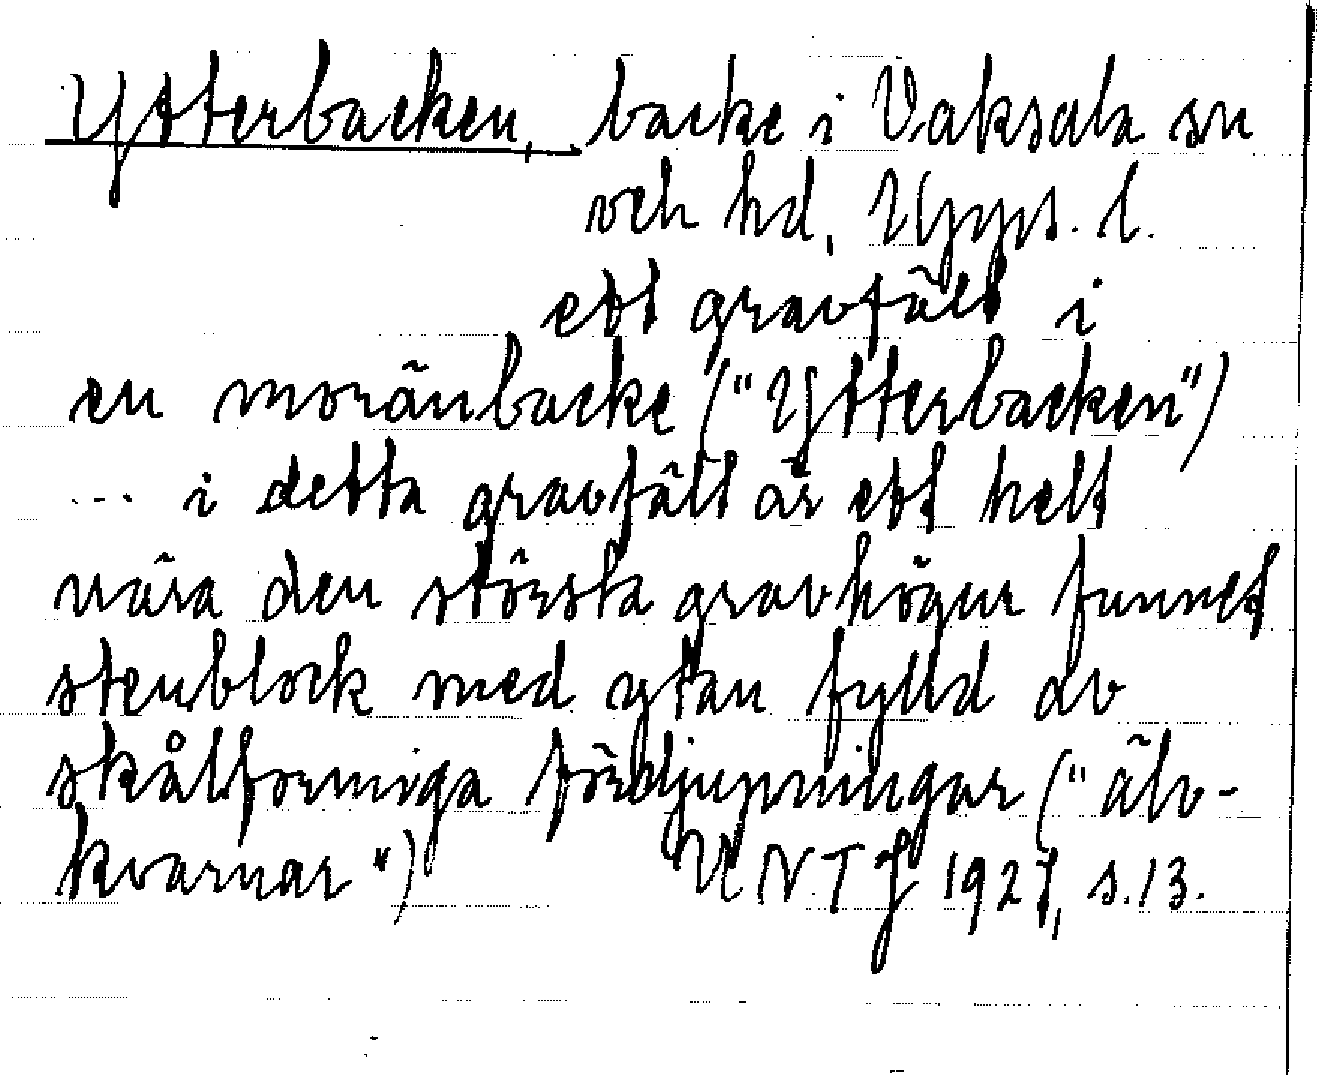 Ytterbacken, backe i Vaksala sn
och hd, Upps. l.
ett gravfält i
en moränbacke ("Ytterbacken")
... i detta gravfält är ett helt
nära den största gravhögen funnet
stenblock med ytan fylld av
skålformiga fördjupningar ("älv-
kvarnar") UNTJ 1927, s. 13.